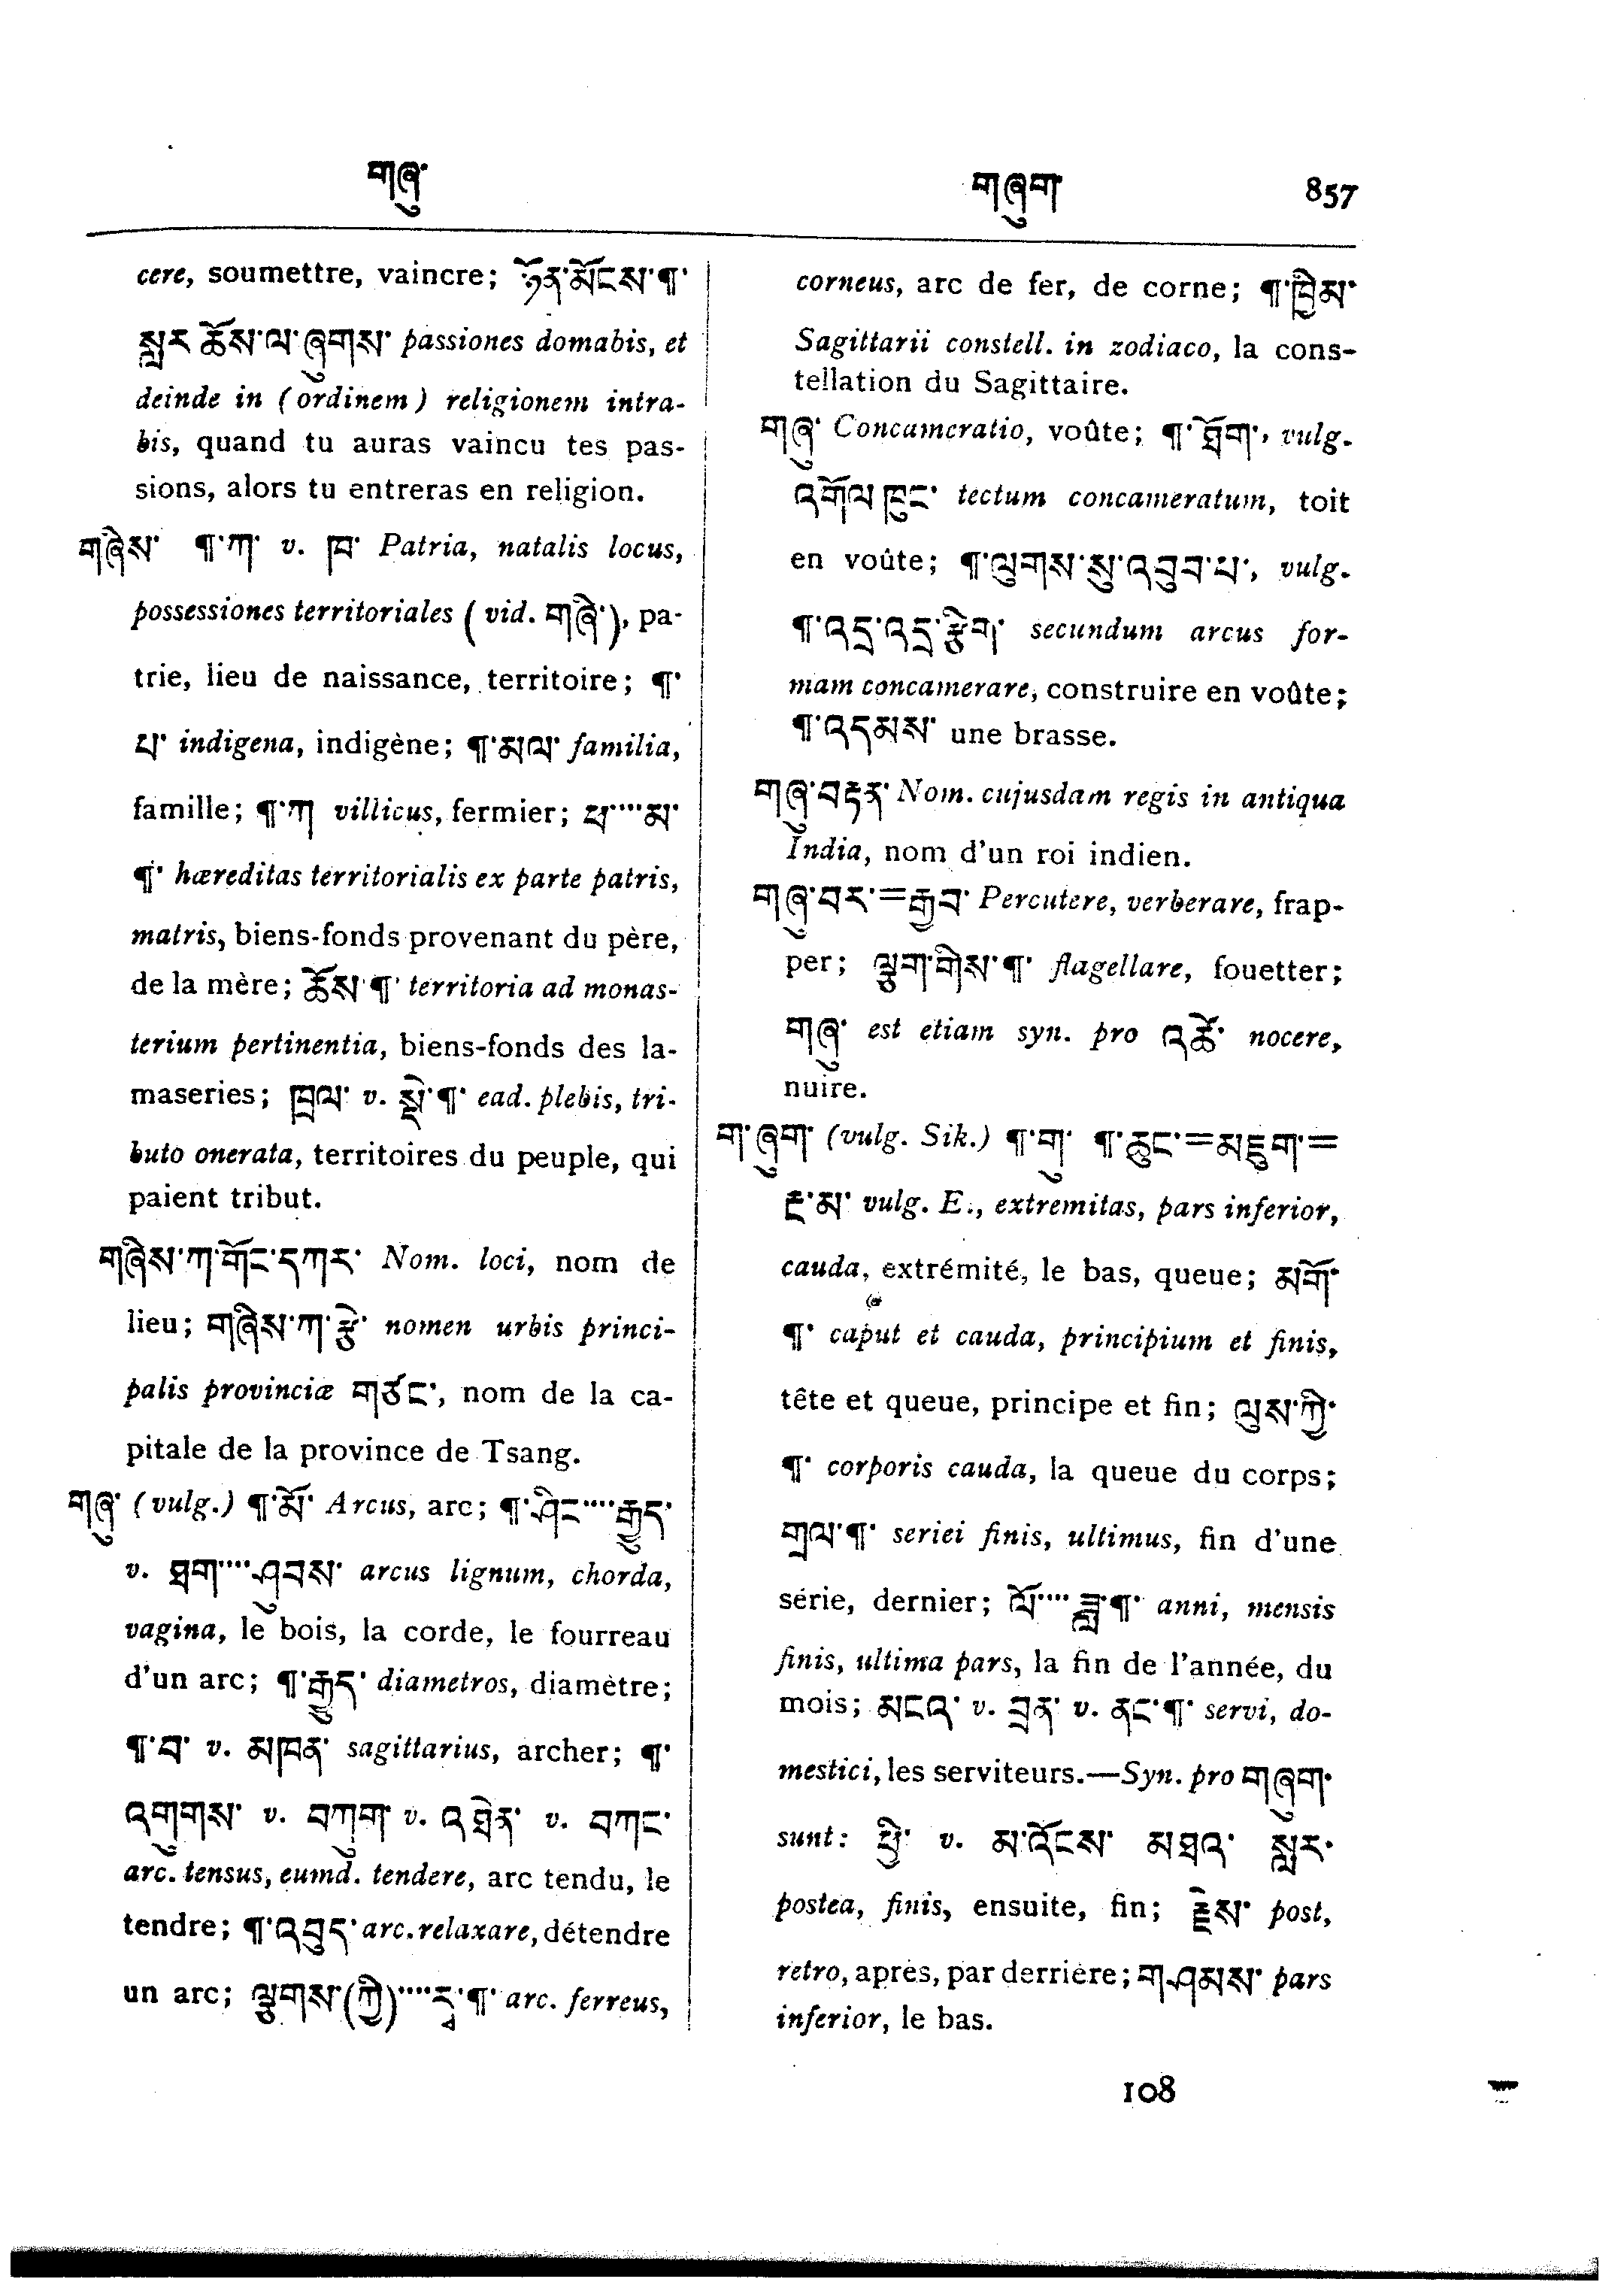 གཞུ་
གཞུག་ 857
cere, soumettre, vaincre; ཉོན་མོངས་¶་
སླར ཆོས་ལ་ཞུགས་ passiones domabis, et
deinde in (ordinem) religionem intra-
bis, quand tu auras vaincu tes pas-
sions, alors tu entreras en religion.
གཞིས་ ¶་ཀ་ v. ཁ་ Patria, natalis locus,
possessiones territoriales (vid. གཞི་), pa-
trie, lieu de naissance, territoire; ¶་
པ་ indigena, indigène; ¶་མལ་ familia,
famille; ¶་ཀ villicus, fermier; ཕ་····མ་
¶་ hæreditas territorialis ex parte patris,
matris, biens-fonds provenant du père,
de la mère; ཆོས་¶་ territoria ad monas-
terium pertinentia, biens-fonds des la-
maseries; ཁྲལ་ v. སྡེ་¶་ ead. plebis, tri-
buto onerata, territoires du peuple, qui
paient tribut.
གཞིས་ཀ་གོང་དཀར་ Nom. loci, nom de
lieu; གཞིས་ཀ་རྩེ་ nomen urbis princi-
palis provinciæ གཙང་, nom de la ca-
pitale de la province de Tsang.
གཞུ་ (vulg.) ¶་མོ་ Arcus, arc; ¶་ཤིང····རྒྱུད་
v. ཐག····ཤུབས་ arcus lignum, chorda,
vagina, le bois, la corde, le fourreau
d'un arc; ¶་རྒྱུད་ diametros, diamètre;
¶་བ་ v. མཁན་ sagittarius, archer; ¶་
འགུགས་ v. བཀུག་ v. འཐེན་ v. བཀང་
arc. tensus, eumd. tendere, arc tendu, le
tendre; ¶་འབུད་ arc. relaxare, détendre
un arc; ལྕགས་(ཀྱི)····རྭ་¶་ arc. ferreus,
corneus, arc de fer, de corne; ¶་ཁྱིམ་
Sagittarii constell. in zodiaco, la cons-
tellation du Sagittaire.
གཞུ་ Concameratio, voûte; ¶་ཐོག་, vulg.
འགོལ ཁུང་ tectum concameratum, toit
en voûte; ¶་ལུགས་སུ་འབུབ་པ་, vulg.
¶་འདྲ་འདྲ་རྩིག་ secundum arcus for-
mam concamerare, construire en voûte;
¶་འདམས་ une brasse.
གཞུ་བརྟན་ Nom. cujusdam regis in antiqua
India, nom d'un roi indien.
གཞུ་བར་=རྒྱབ་ Percutere, verberare, frap-
per; ལྕུག་གིས་¶་ flagellare, fouetter;
གཞུ་ est etiam syn. pro འཚེ་ nocere,
nuire.
ག་ཞུག་ (vulg. Sik.) ¶་གུ་ ¶་ཆུང་=མཇུག་=
རྔ་མ་ vulg. E., extremitas, pars inferior,
cauda, extrémité, le bas, queue; མགོ་
¶་ caput et cauda, principium et finis,
tête et queue, principe et fin; ལུས་ཀྱི་
¶་ corporis cauda, la queue du corps;
གྲལ་¶་ seriei finis, ultimus, fin d'une
série, dernier; ལོ་····ཟླ་¶་ anni, mensis
finis, ultima pars, la fin de l'année, du
mois; མངའ་ v. བྲན་ v. ནང་¶་ servi, do-
mestici, les serviteurs.—Syn. pro གཞུག་
sunt: ཕྱི་ v. མ་འོངས་ མཐའ་ སླར་
postea, finis, ensuite, fin; རྗེས་ post,
retro, après, par derrière; ག་ཤམས་ pars
inferior, le bas.
108